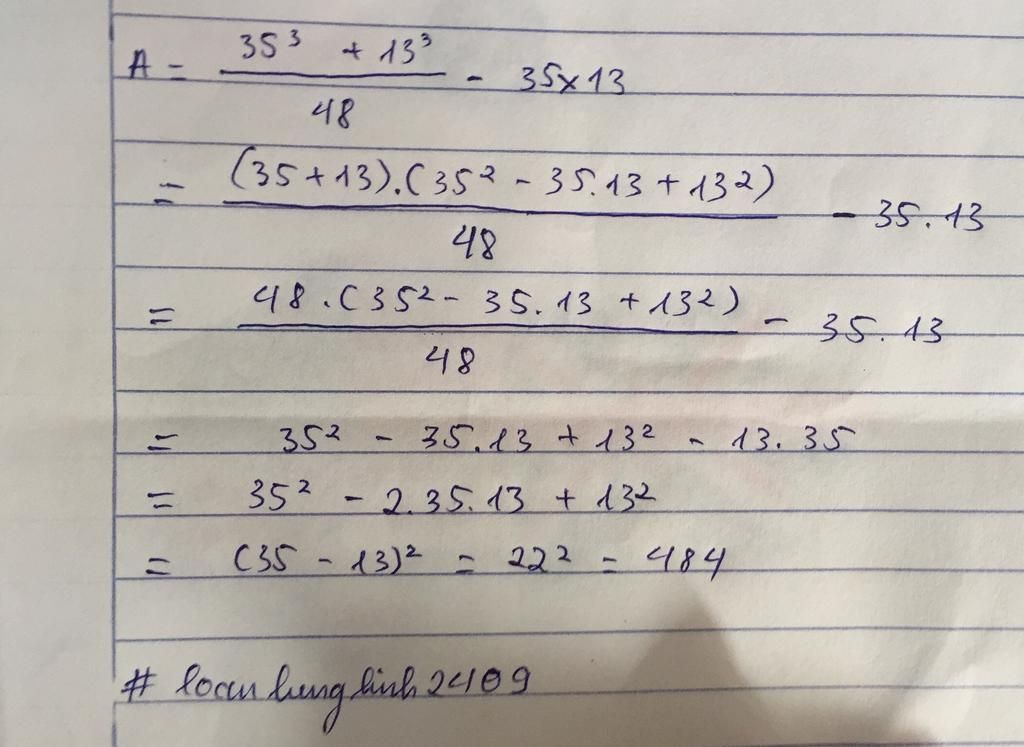 A = \frac{35³ + 13³}{48} - 35x13
= \frac{(35+13).(35² - 35.13 + 13²)}{48} - 35.13
= \frac{48.(35² - 35.13 + 13²)}{48} - 35.13
= 35² - 35.13 + 13² - 13.35
= 35² - 2.35.13 + 13²
= (35 - 13)² = 22² = 484
# loan lung linh 2409